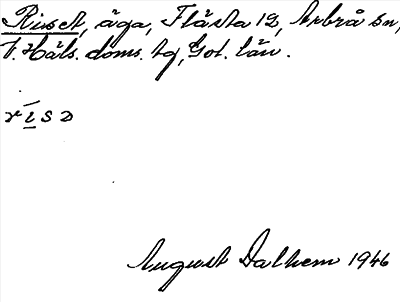 Riset, äga, Flästa 12, Arbrå sn,
V. Häls. doms. tg, Gvl. län.
r í s ɔ
August Dalhem 1946